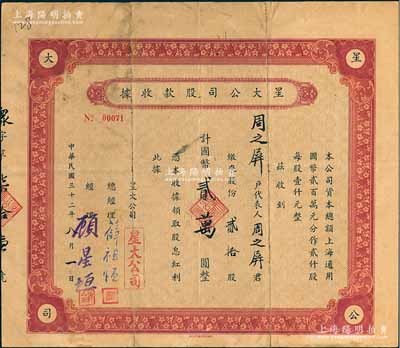 上海陽明拍賣
星
大
公
司
星大公司股款收據
No. 00071
本公司資本總額上海通用
國幣貳百萬元分作貳仟股
每股壹仟元整
茲收到
周之屏 戶代表人 周之屏 君
繳來股份 貳拾 股
計國幣 貳萬 圓整
憑本收據領取股息紅利
此據
星大公司
總經理
經理 顧星垣
星大公司
中華民國三十二年八月一日